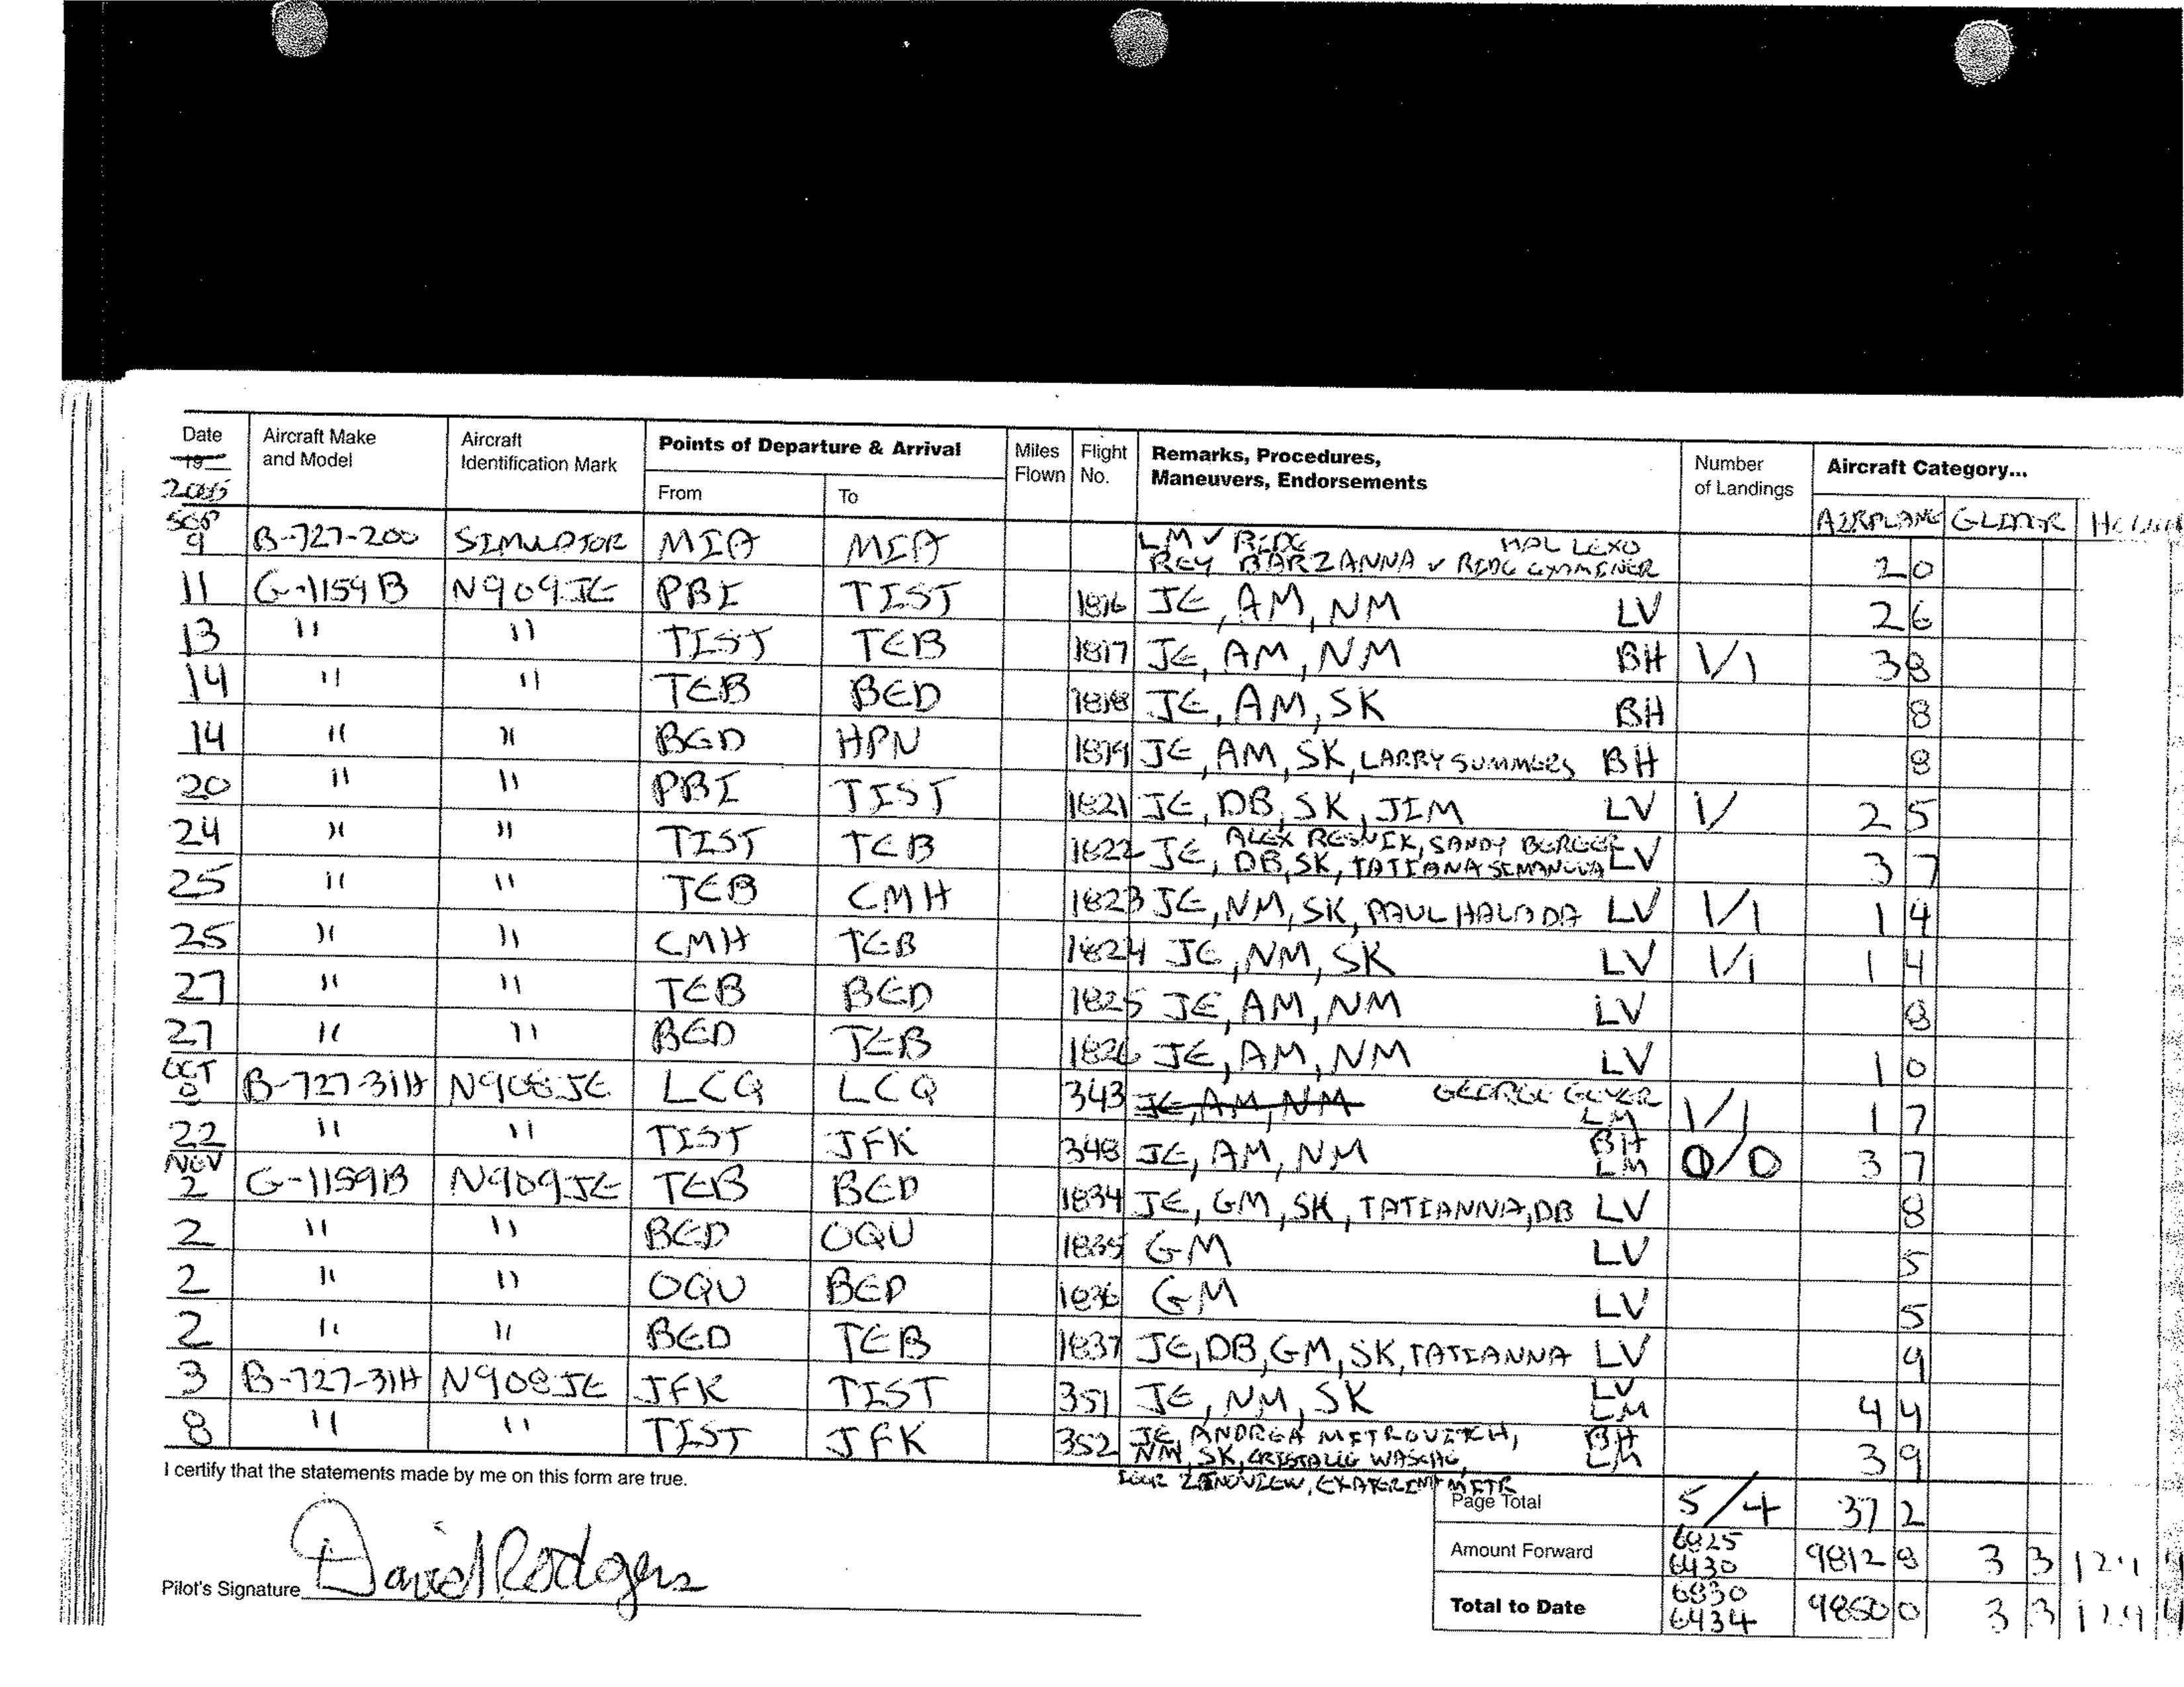 Date Aircraft Make and Model Aircraft Identification Mark Points of Departure & Arrival Miles Flown Flight No. Remarks, Procedures, Maneuvers, Endorsements Number of Landings Aircraft Category...
19 2005 From To AIRPLANE GLIDER
SEP 9 B-727-200 SIMULATOR MIA MIA LM ✓ RIDE HAL LEXO REY BARZANNA ✓ RIDE EXAMINER 2 0
11 G-1159B N909JE PBI TIST 1816 JE, AM, NM LV 2 6
13 " " TIST TEB 1817 JE, AM, NM BH 1/1 3 8
14 " " TEB BED 1818 JE, AM, SK BH 8
14 " " BED HPN 1819 JE, AM, SK, LARRY SUMMERS BH 8
20 " " PBI TIST 1821 JE, DB, SK, JIM LV 1/ 2 5
24 " " TIST TEB 1822 JE, ALEX RESNIK, SANDY BERGER DB, SK, TATIANA LV 3 7
25 " " TEB CMH 1823 JE, NM, SK, PAUL LV 1/1 1 4
25 " " CMH TEB 1824 JE, NM, SK LV 1/1 1 4
27 " " TEB BED 1825 JE, AM, NM LV 8
27 " " BED TEB 1826 JE, AM, NM LV 1 0
OCT B-727-31H N908JE LCQ LCQ 343 JE, AM, NM GEORGE LM 1/1 1 7
22 " " TIST JFK 348 JE, AM, NM BH LM 0/0 3 7
NOV 2 G-1159B N909JE TEB BED 1834 JE, GM, SK, TATIANNA, DB LV 8
2 " " BED OQU 1835 GM LV 5
2 " " OQU BED 1836 GM LV 5
2 " " BED TEB 1837 JE, DB, GM, SK, TATIANNA LV 9
3 B-727-31H N908JE JFK TIST 351 JE, NM, SK LV LM 4 4
8 " " TIST JFK 352 JE, ANDREA METROVITCH, NM, SK, BH LM 3 9
I certify that the statements made by me on this form are true.
Page Total 5/4 37 2
Amount Forward 6825 6430 9812 8 3 3
Pilot's Signature David Rodgers
Total to Date 6830 6434 9850 0 3 3